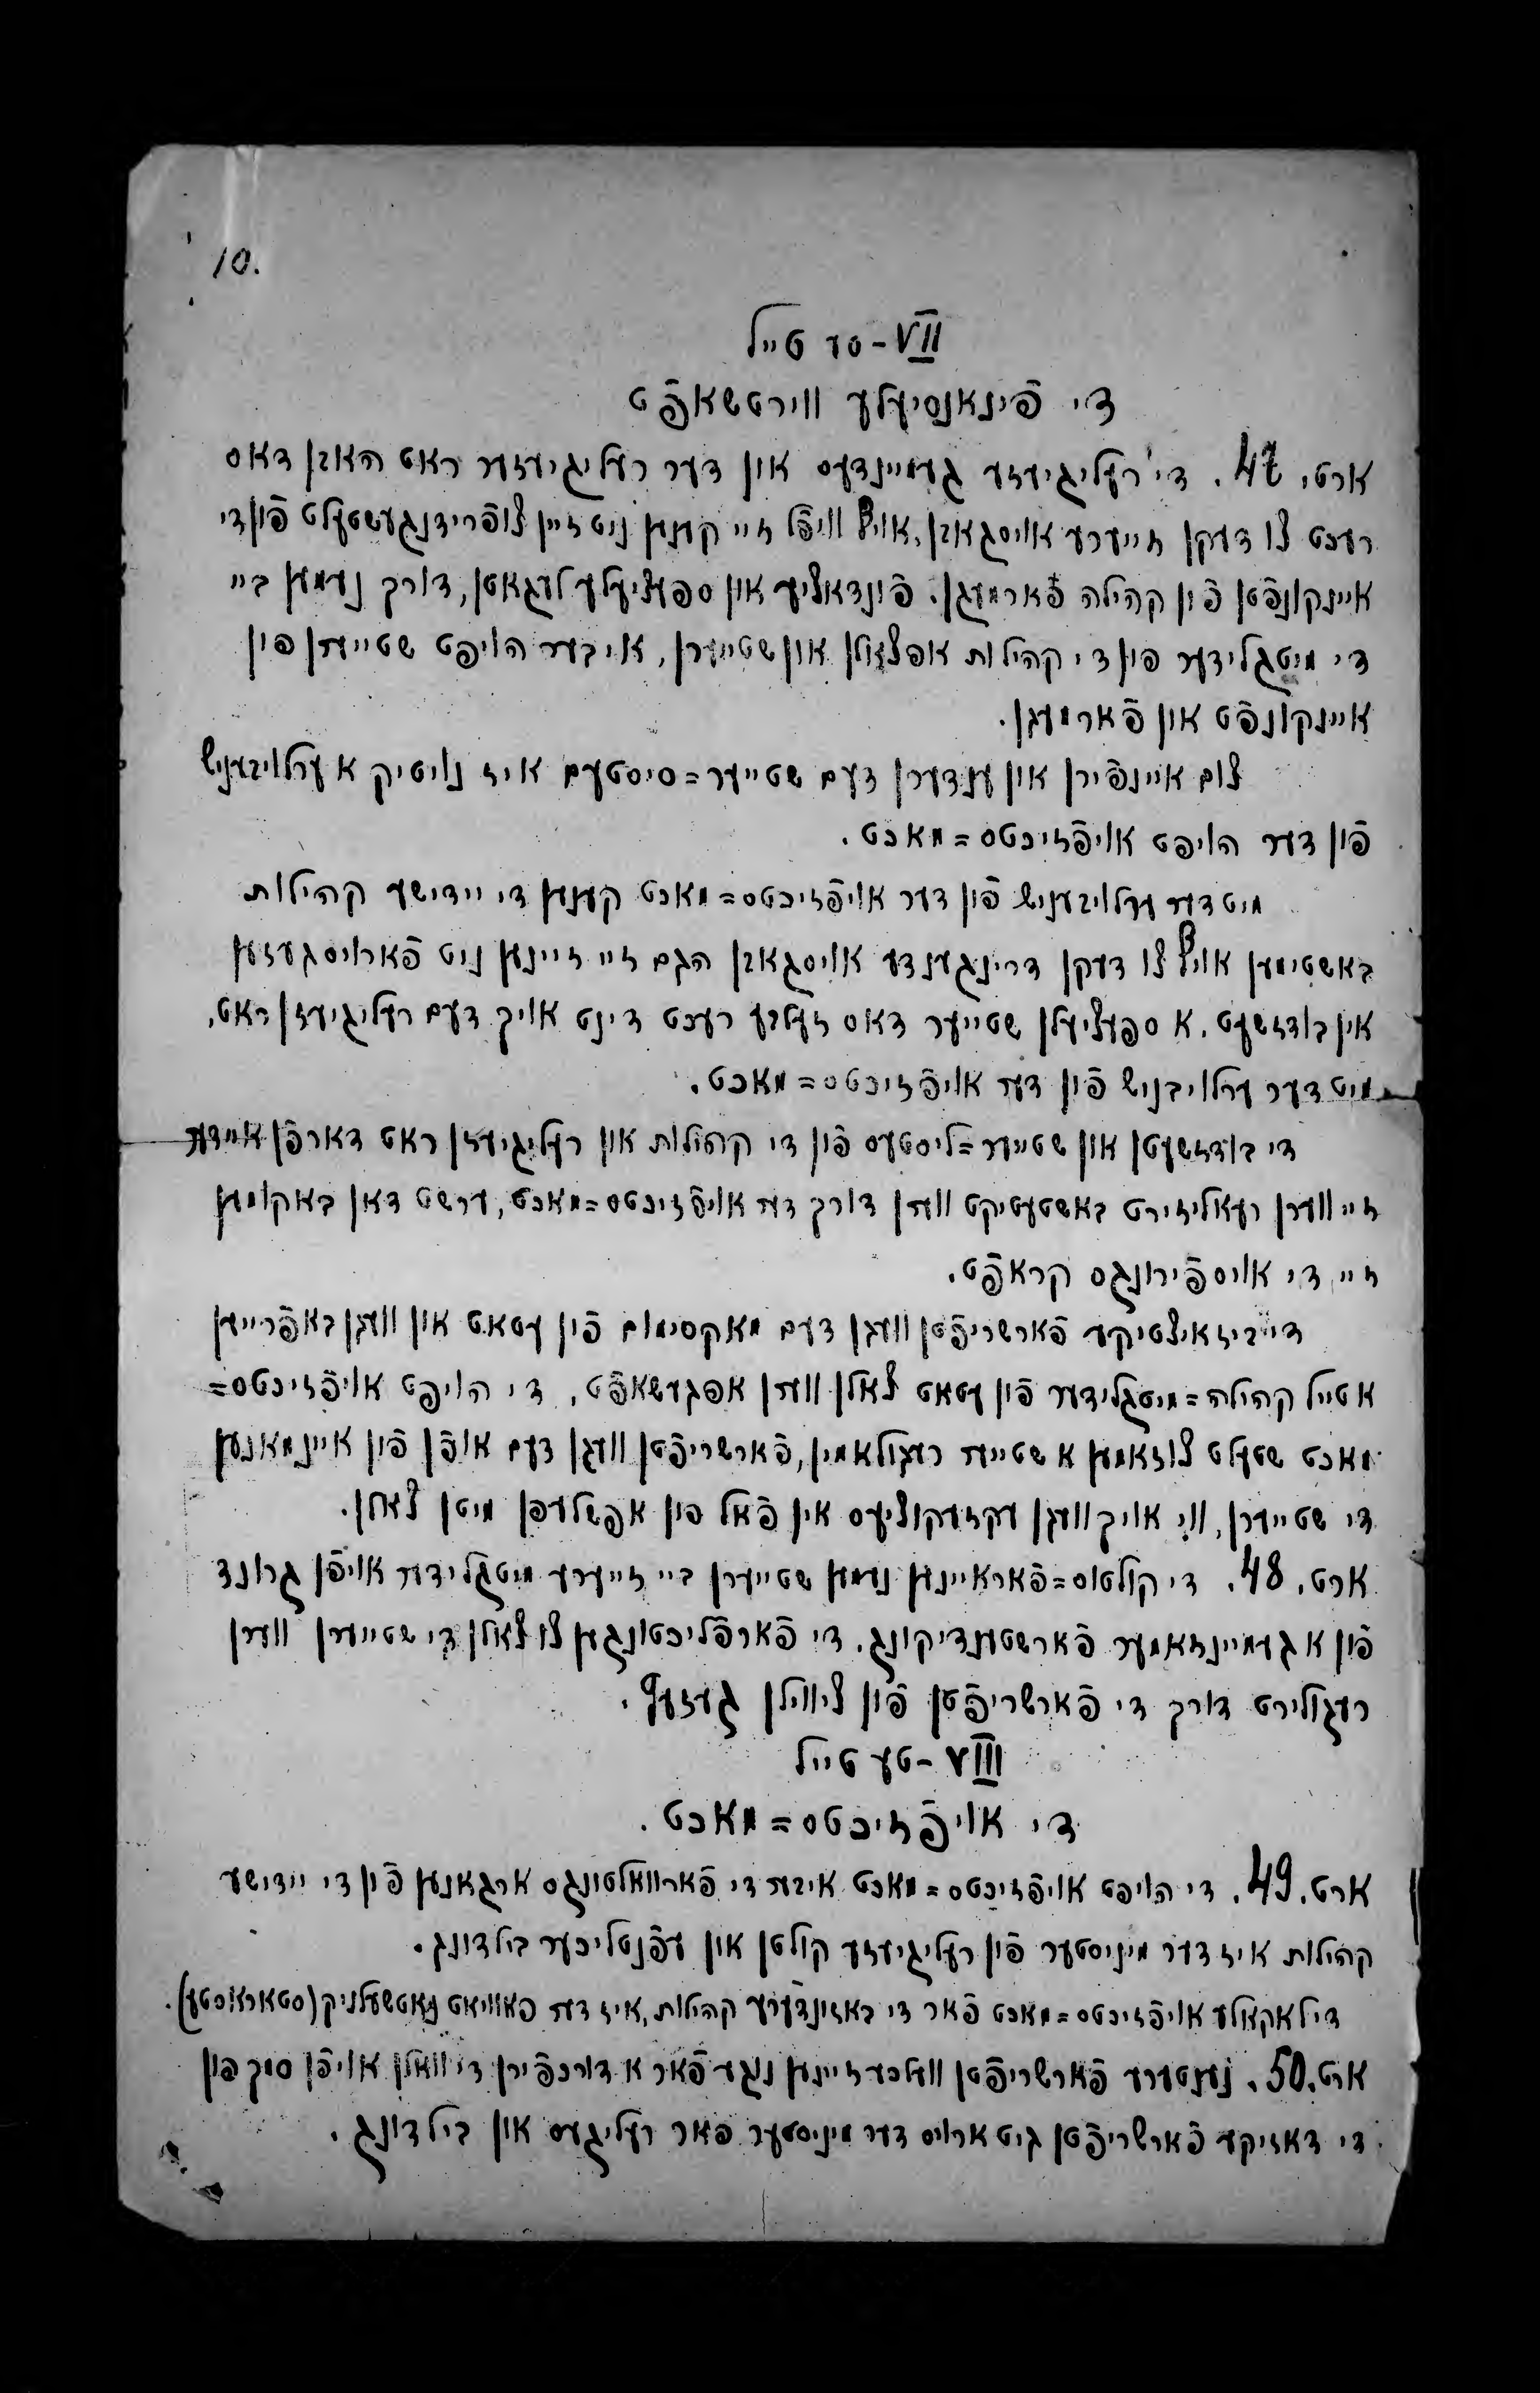 10.
VII - טע טייל
די פֿינאנסיעלע ווירטשאפֿט
ארט. 47. די רעליגיעזע געמיינדעס און דער רעליגיעזער ראט האבן דאס
רעכט צו דעקן זייערע אויסגאבן, אויף וויפֿל זיי קענען ניט זיין צופֿרידנגעשטעלט פֿון די
איינקונפֿטן פֿון קהילה פֿארמעגן. פֿונדאציע און ספעציעלע לעגאטן, דורך נעמען ביי
די מיטגלידער פון די קהילות אפצאלן און שטייערן, אויבער הויפט שטייערן פון
איינקונפֿט און פֿארמעגן.
צום איינפֿירן און ענדערן דעם שטייער=סיסטעם איז נויטיק א ערלויבעניש
פֿון דער הויפט אויפֿזיכטס=מאכט.
מיט דער ערלויבעניש פֿון דער אויפֿזיכטס=מאכט קענען די יידישע קהילות
באשטימען אויף צו דעקן דרינגענדע אויסגאבן הגם זיי זיינען ניט פֿארויסגעזען
אין בודזשעט. א ספעציעלן שטייער דאס זעלבע רעכט דינט אויך דעם רעליגיעזן ראט,
מיט דער ערלויבניש פֿון דער אויפֿזיכטס=מאכט.
די בודזשעטן און שטייער=ליסטעס פֿון די קהילות און רעליגיעזן ראט דארפֿן איידער
זיי ווערן רעאליזירט באשטעטיקט ווערן דורך דער אויפֿזיכטס=מאכט, ערשט דאן באקומען
זיי די אויספֿירונגס קראפֿט.
די ביזאיצטיקע פֿארשריפֿטן וועגן דעם מאקסימום פֿון עטאט און וועגן באפֿרייען
א טייל קהילה=מיטגלידער פֿון עטאט צאלן ווערן אפגעשאפֿט, די הויפט אויפֿזיכטס=
מאכט שטעלט צוזאמען א שטייער רעגולאמין, פֿארשריפֿטן וועגן דעם אופֿן פֿון איינמאנען
די שטייערן, ווי אויך וועגן עקזעקוציעס אין פֿאל פון אפשלעפן מיטן צאלן.
ארט. 48. די קולטוס=פֿאראיינען נעמען שטייערן ביי זייערע מיטגלידער אויפֿן גרונד
פֿון א געמיינזאמער פֿארשטענדיקונג. די פֿארפֿליכטונגען צו צאלן די שטייערן ווערן
רעגולירט דורך די פֿארשריפֿטן פֿון ציווילן געזעץ.
VIII - טע טייל
די אויפֿזיכטס=מאכט.
ארט. 49. די הויפט אויפֿזיכטס=מאכט איבער די פֿארוואלטונגס ארגאנען פֿון די יידישע
קהילות איז דער מיניסטער פֿון רעליגיעזע קולטן און עפֿנטליכער בילדונג.
די לאקאלע אויפֿזיכטס=מאכט פֿאר די באזונדערע קהילות, איז דער פאוויאט נאטשעלניק (סטאראסטע).
ארט. 50. נענטערע פֿארשריפֿטן וועלכע זיינען נוגע פֿאר א דורכפֿירן די וואלן אויפֿן סמך פון
די דאזיקע פֿארשריפֿטן גיט ארויס דער מיניסטער פאר רעליגעס און בילדונג.